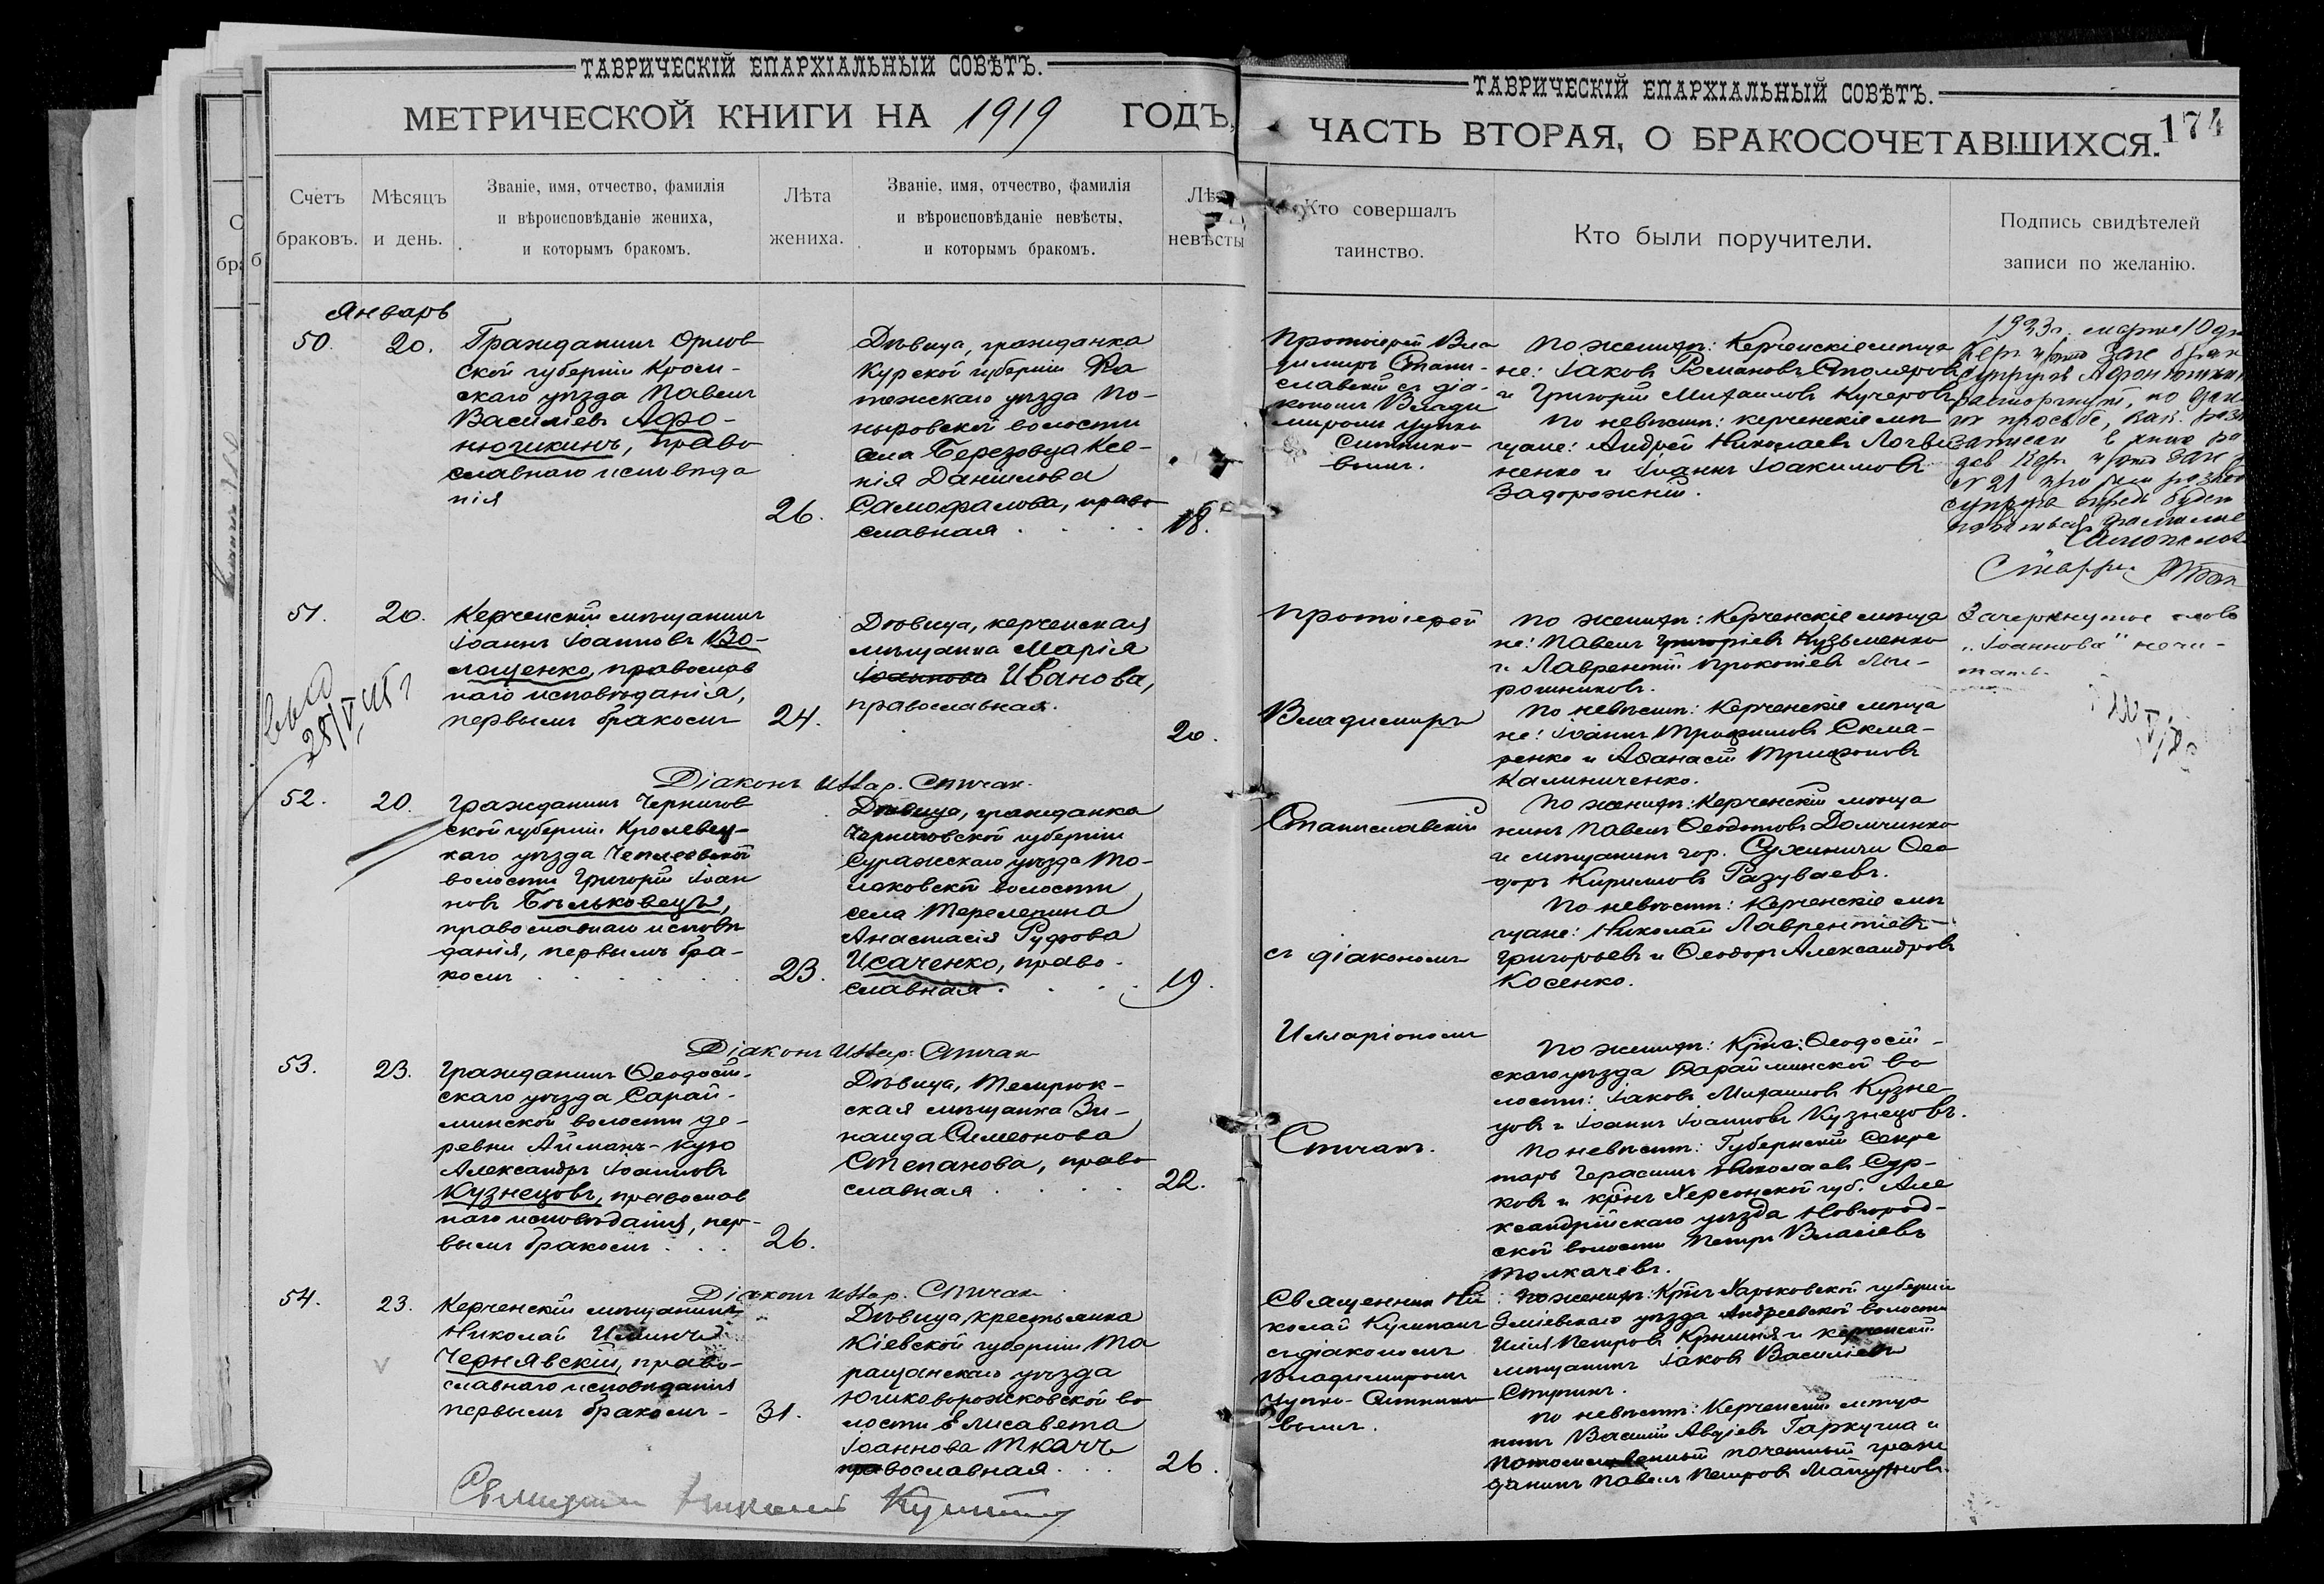 ТАВРИЧЕСКІЙ ЕПАРХІАЛЬНЫЙ СОВѢТЪ.
МЕТРИЧЕСКОЙ КНИГИ НА 1919 ГОДЪ,
Счетъ браковъ.
Мѣсяцъ и день.
Званіе, имя, отчество, фамилія
и вѣроисповѣданіе жениха,
и которымъ бракомъ.
Лѣта жениха.
Званіе, имя, отчество, фамилія
и вѣроисповѣданіе невѣсты,
и которымъ бракомъ.
невѣсты
ТАВРИЧЕСКІЙ ЕПАРХІАЛЬНЫЙ СОВѢТЪ.
ЧАСТЬ ВТОРАЯ, О БРАКОСОЧЕТАВШИХСЯ.
174
Кто совершалъ
таинство.
Кто были поручители.
Подпись свидѣтелей
записи по желанію.
Январь
50.
20.
Гражданинъ Орлов
ской губерніи Кром-
скаго уѣзда Павелъ
Василіевъ Афо-
нюшкинъ, право
славнаго исповѣда
нія
26.
Дѣвица, гражданка
Курской губерніи Фа
тежскаго уѣзда По-
ныровской волости
села Березовца Ксе-
нія Даніилова
Самофалова, право
славная
18.
Протоіерей Вла
диміръ Стани-
славскій съ діа-
кономъ Влади
міромъ Чупко
Ситнико-
вымъ.
По женихѣ: Керченскіе мѣща
не: Іаковъ Романовъ Столяровъ
и Григорій Михаиловъ Кучеровъ
По невѣстѣ: керченскіе мѣ
щане: Андрей Николаевъ Логви
ненко и Іоаннъ Іоакимовъ
Задорожній.
1923 г. марта 10 дня
супруговъ
расторгнутъ, по
их просьбѣ,
записан в книг
N 21
супруга впредь будет
фамиліе
51.
20.
Керченскій мѣщанинъ
Іоаннъ Іоанновъ Во-
лощенко, православ
наго исповѣданія,
первымъ бракомъ
24.
Дѣвица, керченская
мѣщанка Марія
Іоаннова Иванова,
православная.
20.
Протоіерей
Владиміръ
По женихѣ: Керченскіе мѣща
не: Павелъ Григоріевъ Кузьменко
и Лаврентій Прокопіевъ Ми-
рошниковъ.
По невѣстѣ: Керченскіе мѣща
не: Іоаннъ Трофимовъ Скля-
ренко и Аѳанасій Трифоновъ
Калиниченко.
Зачеркнутое слово
„Іоаннова" не чи-
тать.
Діаконъ Илар. Стичан.
52.
20.
Гражданинъ Чернигов
ской губерніи Кролевец-
каго уѣзда
волости Григорій Іоан
новъ Бѣльковецъ,
православнаго исповѣ
данія, первымъ бра-
комъ
23.
Дѣвица, гражданка
Черниговской губерніи
Суражскаго уѣзда
волости
села
Анастасія Руфова
Исаченко, право-
славная.
19.
Станиславскій
съ діакономъ
По женихѣ: Керченскій мѣща
нинъ Павелъ Ѳеодотовъ Домчинко
и мѣщанинъ гор. Сухиничи Ѳео
доръ Кирилловъ Разуваевъ.
По невѣстѣ: Керченскіе мѣ
щане: Николай Лаврентіевъ
Григорьевъ и Ѳеодоръ Александровъ
Косенко.
Діаконъ Илар. Стичан
53.
23.
Гражданинъ Ѳеодосій-
скаго уѣзда Сарай-
минской волости де-
ревни Айманъ-Кую
Александръ Іоанновъ
Кузнецовъ, православ
наго исповѣданія, пер-
вымъ бракомъ
26.
Дѣвица, Темрюк-
ская мѣщанка Зи-
наида Симеонова
Степанова, право
славная
22.
Илларіономъ
Стичанъ.
По женихѣ: Кр-не: Ѳеодосій-
скаго уѣзда Сарайминской во
лости: Іаковъ Михаиловъ Кузне-
цовъ и Іоаннъ Іоанновъ Кузнецовъ.
По невѣстѣ: Губернскій Секре
тарь Герасимъ Николаевъ Сур-
ковъ и кр-нъ Херсонской губ. Але
ксандрійскаго уѣзда Новгород-
ской волости Петръ Власіевъ
Толкачевъ.
Діаконъ Илар. Стичан
54.
23.
Керченскій мѣщанинъ
Николай Ильинъ
Чернявскій, право-
славнаго исповѣданія
первымъ бракомъ
31.
Дѣвица, крестьянка
Кіевской губерніи Та
ращанскаго уѣзда
во
лости Елисавета
Іоаннова Ткачъ
православная
26.
Священник Ни
колай
съ діакономъ
Владиміромъ
Чупко-Ситнико
вымъ.
По женихѣ: Кр-нъ Харьковской губерніи
Зміевскаго уѣзда Андреевской волости
Илія Петровъ и керченскій
мѣщанинъ Іаковъ Василіевъ
Ступинъ.
По невѣстѣ: Керченскій мѣща
нинъ Василій и
потомственный почетный граж
данинъ Павелъ Петровъ
Священникъ Николай